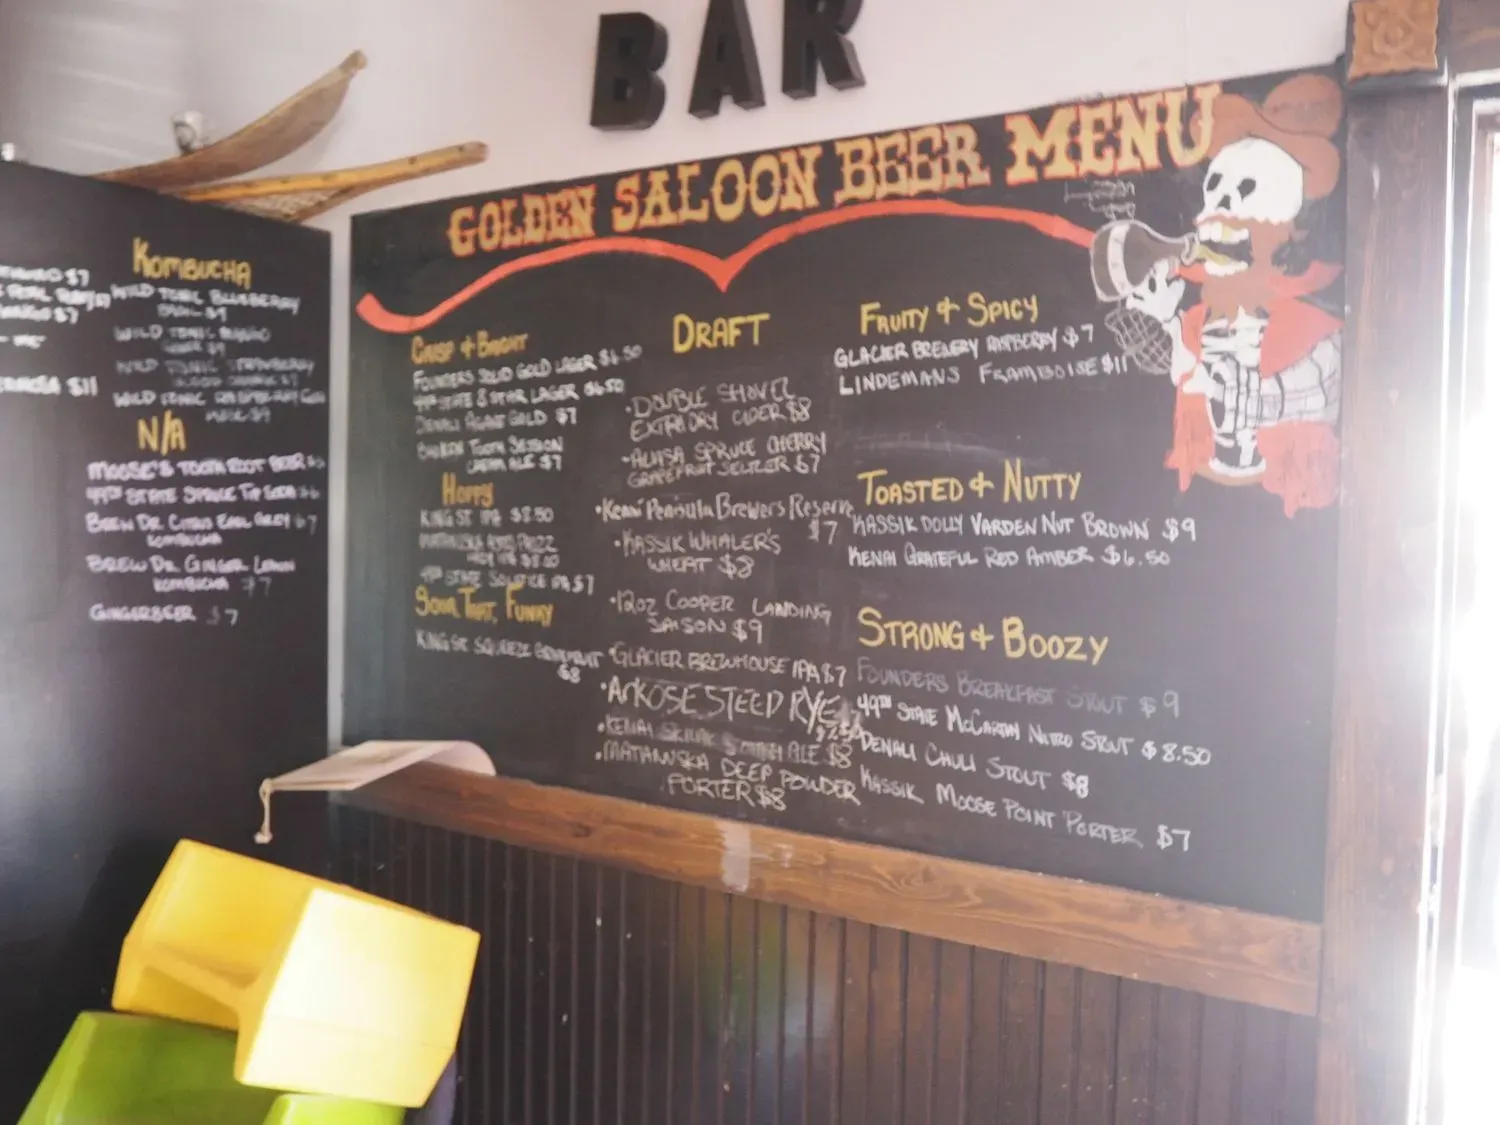 BAR
GOLDEN SALOON BEER MENU
KOMBUCHA
$7
WILD TONIC BLUEBERRY
BASIL $9
$7
WILD TONIC MANGO
WILD TONIC
$11
WILD TONIC RASPBERRY
N/A
MOOSE'S TOOTH ROOT BEER
49TH STATE SPRUCE TIP SODA
BREW DR. CITRUS EARL GREY $7
KOMBUCHA
BREW DR. GINGER LEMON
KOMBUCHA $7
GINGERBEER $7
CRISP & BRIGHT
FOUNDERS SOLID GOLD LAGER $6.50
49TH STATE 8 STAR LAGER $6.50
DENALI AGAVE GOLD $7
CHICKEN TOOTH SESSION
CREAM ALE $7
HOPPY
KING ST. IPA $8.50
MATANUSKA
IPA $8.00
49TH STATE SOLSTICE IPA $7
SOUR, TART, FUNKY
KING ST. SQUEEZE GRAPEFRUIT
$8
DRAFT
•DOUBLE SHOVEL
EXTRA DRY CIDER $8
•ALASKA SPRUCE CHERRY
GRAPEFRUIT SELTZER $7
•Kenai Peninsula Brewers Reserve
$7
•KASSIK WHALER'S
WHEAT $8
•12oz COOPER LANDING
SAISON $9
•GLACIER BREWHOUSE IPA $7
•ARKOSE STEED RYE
•KENAI SKILAK SCOTTISH ALE $8
•MATANUSKA DEEP POWDER
PORTER $8
FRUITY & SPICY
GLACIER BREWERY RASPBERRY $7
LINDEMANS FRAMBOISE $11
TOASTED & NUTTY
KASSIK DOLLY VARDEN NUT BROWN $9
KENAI GRATEFUL RED AMBER $6.50
STRONG & BOOZY
FOUNDERS BREAKFAST STOUT $9
49TH STATE McCARTHY NITRO STOUT $8.50
DENALI CHULI STOUT $8
KASSIK MOOSE POINT PORTER $7